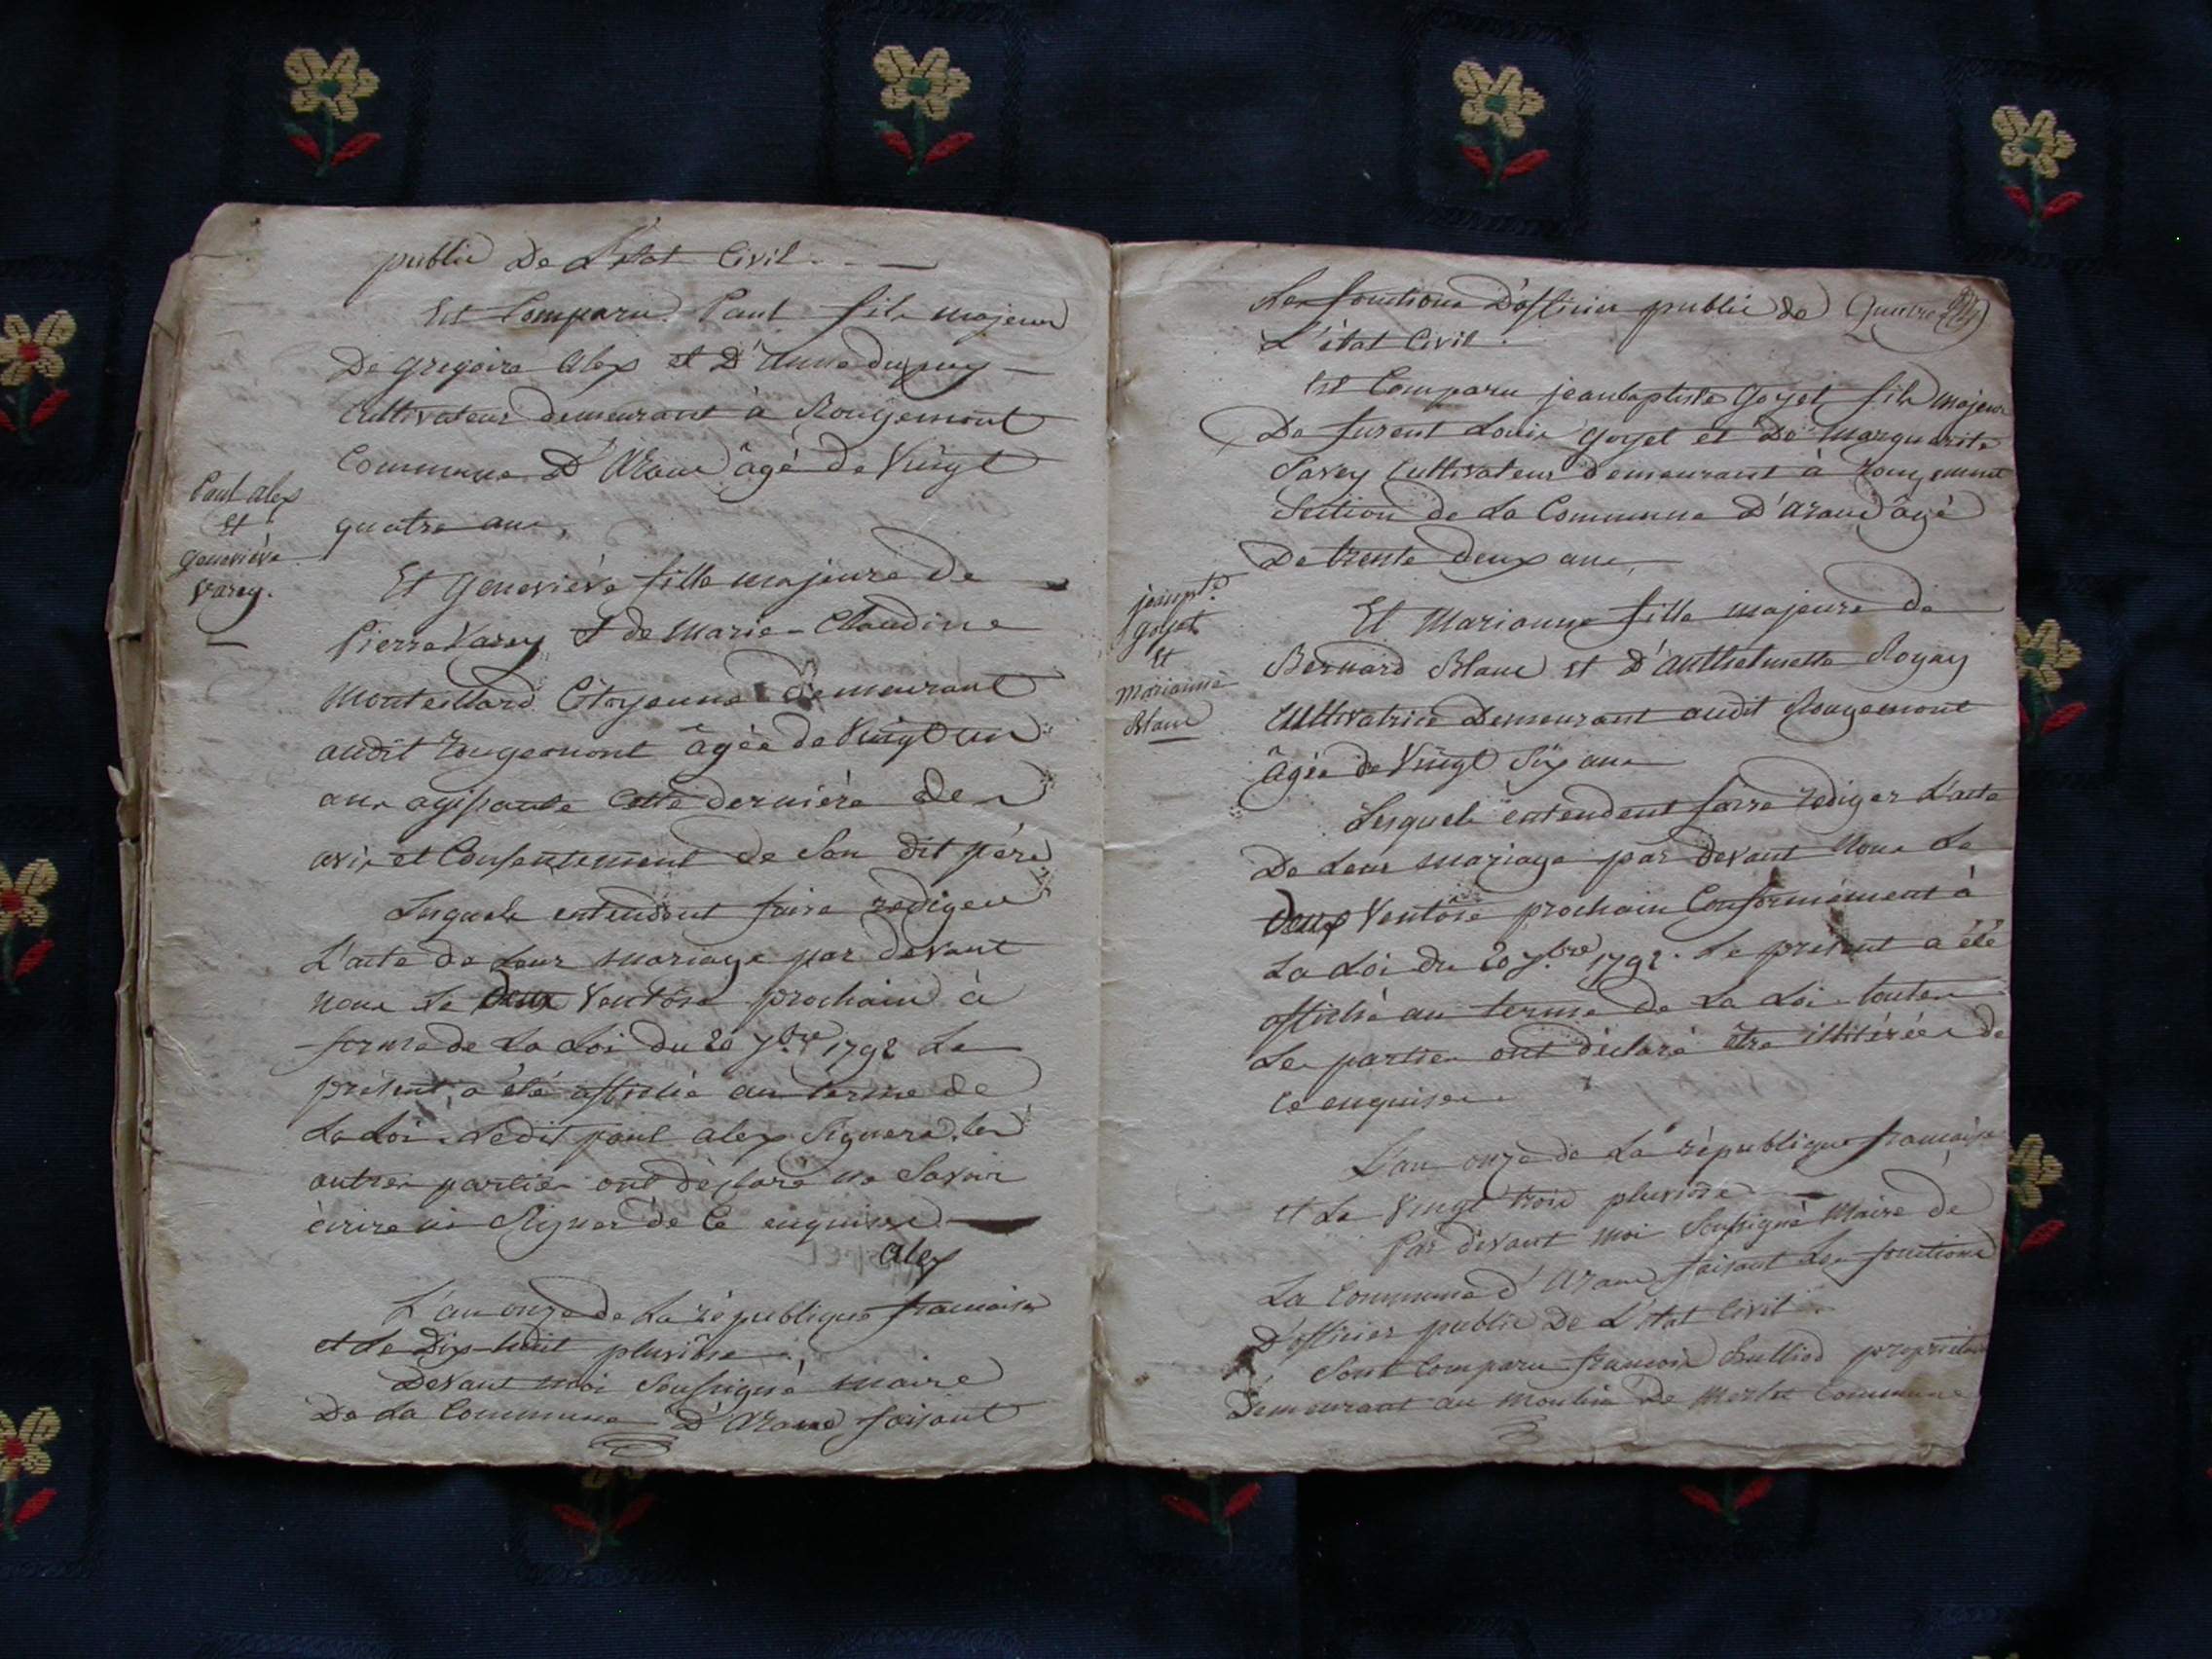 public De L'état Civil.
Est Comparu Paul fils majeur
De gregoire alex et D'Anne dupuy
Cultivateur demeurant à Rougemont
Commune D'Aranc âgé de Vingt
quatre ans,
Paul alex
et
genevièvre
Varey.
Et genevièvre fille majeure de
Pierre Varey et de Marie-Claudine
Monteillard Citoyenne demeurant
audit rougemont âgée de Vingt un
ans agissante Cette dernière de
avis et Consentement de Son dit père
Lesquels entendent faire rediger
L'acte de Leur mariage par devant
nous Le Deux Ventôse prochain à
forme de La Loi du 20 7.bre 1792 Le
présent a été affiché au terme de
La Loi. Ledit paul alex Signera, les
autres parties ont déclaré ne Savoir
écrire ni Signer de Ce enquises.
alex
L'an onze de La république francaise
et Le Dix-huit pluviôse.
Devant moi Soussigné maire
De La Commune D'Aranc faisant
Les fonctions D'officier public de
L'état Civil.
Est Comparu jeanbaptiste goyet fils majeur
De furent Louis goyet et De marguerite
Savey Cultivateur Demeurant à rougemont
Section de La Commune D'aranc âgé
De trente deux ans,
jeanbpt.e
goyet
et
marianne
Blanc
Et Marianne fille majeure de
Bernard Blanc et D'anthelmette Royay
Cultivatrice Demeurant audit Rougemont
âgée de Vingt Six ans
Lesquels entendent faire rediger L'acte
De Leur mariage par devant Nous Le
Deux Ventôse prochain Conformément à
La Loi du 20 7.bre 1792. Le présent a été
affiché au terme de La Loi toutes
Les parties ont déclaré être illitérées de
Ce enquises.
L'an onze de La république francaise
et Le Vingt trois pluviôse
Par devant moi Soussigné Maire de
La Commune d'Aranc faisant Les fonctions
D'officier public De L'état Civil.
Sont Comparu francois Bulliod propriétaire
Demeurant au moulin De Commune